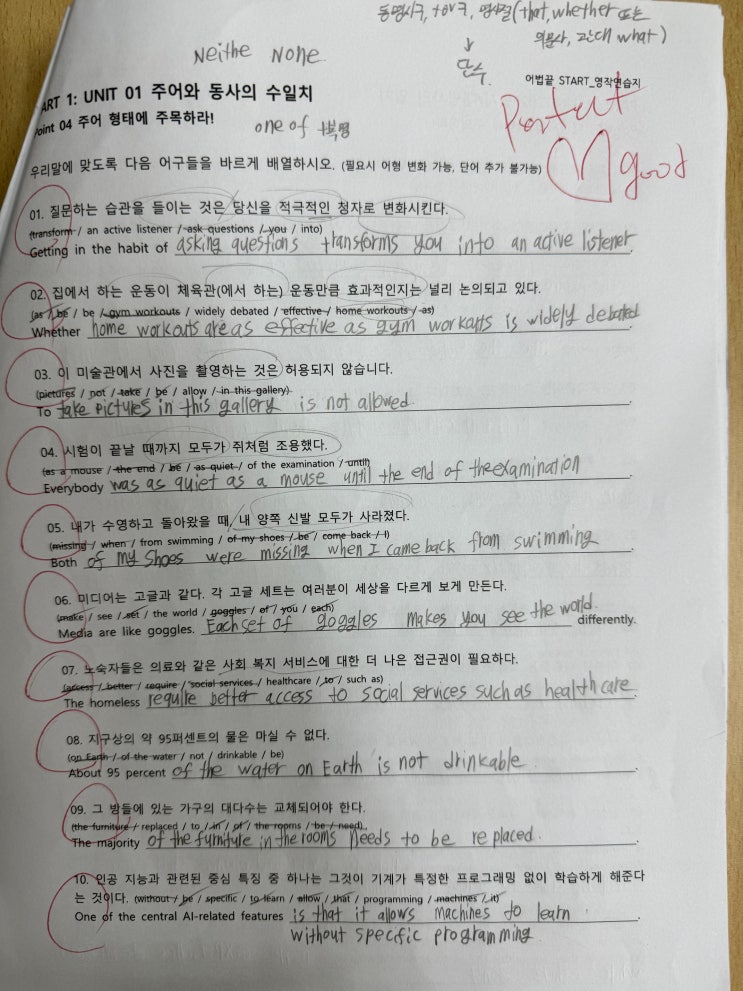 동명사구, to V구, 명사절(that, whether 또는
의문사, 관대 what)
↓
단수
Neithe None
ART 1: UNIT 01 주어와 동사의 수일치
어법끝 START_영작연습지
Point 04 주어 형태에 주목하라!
one of +복명
Perfect
good
우리말에 맞도록 다음 어구들을 바르게 배열하시오. (필요시 어형 변화 가능, 단어 추가 불가능)
01. 질문하는 습관을 들이는 것은 당신을 적극적인 청자로 변화시킨다.
(transform / an active listener / ask questions / you / into)
Getting in the habit of asking questions transforms you into an active listener.
02. 집에서 하는 운동이 체육관(에서 하는) 운동만큼 효과적인지는 널리 논의되고 있다.
(as / be / be / gym workouts / widely debated / effective / home workouts / as)
Whether home workouts are as effective as gym workouts is widely debated
03. 이 미술관에서 사진을 촬영하는 것은 허용되지 않습니다.
(pictures / not / take / be / allow / in this gallery)
To take pictures in this gallery is not allowed.
04. 시험이 끝날 때까지 모두가 쥐처럼 조용했다.
(as a mouse / the end / be / as quiet / of the examination / until)
Everybody was as quiet as a mouse until the end of the examination
05. 내가 수영하고 돌아왔을 때, 내 양쪽 신발 모두가 사라졌다.
(missing / when / from swimming / of my shoes / be / come back / I)
Both of my shoes were missing when I came back from swimming
06. 미디어는 고글과 같다. 각 고글 세트는 여러분이 세상을 다르게 보게 만든다.
(make / see / set / the world / goggles / of / you / each)
Media are like goggles. Each set of goggles makes you see the world differently.
07. 노숙자들은 의료와 같은 사회 복지 서비스에 대한 더 나은 접근권이 필요하다.
(access / better / require / social services / healthcare / to / such as)
The homeless require better access to social services such as healthcare.
08. 지구상의 약 95퍼센트의 물은 마실 수 없다.
(on Earth / of the water / not / drinkable / be)
About 95 percent of the water on Earth is not drinkable.
09. 그 방들에 있는 가구의 대다수는 교체되어야 한다.
(the furniture / replaced / to / in / of / the rooms / be / need)
The majority of the furniture in the rooms needs to be replaced.
10. 인공 지능과 관련된 중심 특징 중 하나는 그것이 기계가 특정한 프로그래밍 없이 학습하게 해준다
는 것이다. (without / be / specific / to learn / allow / that / programming / machines / it)
One of the central AI-related features is that it allows machines to learn
without specific programming.